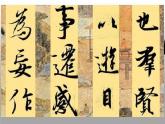 也羣賢
以遊目
事遷感
為妄作